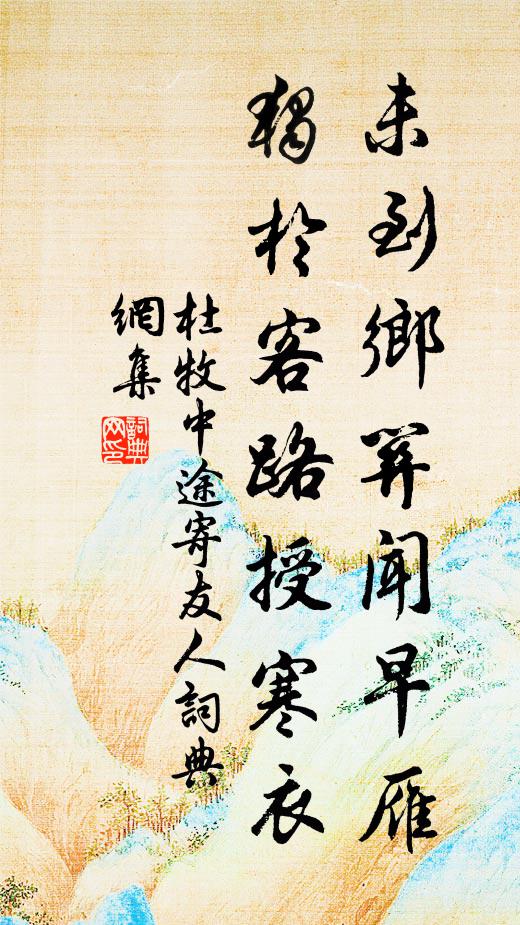 未到鄉關聞早雁
獨於客路授寒衣
杜牧中途寄友人詞典
網集
詞典
网印